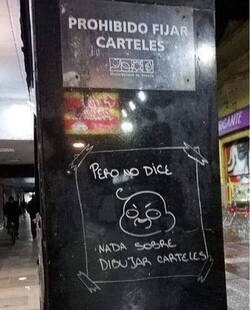 PROHIBIDO FIJAR
CARTELES
PERO NO DICE
NADA SOBRE
DIBUJAR CARTELES